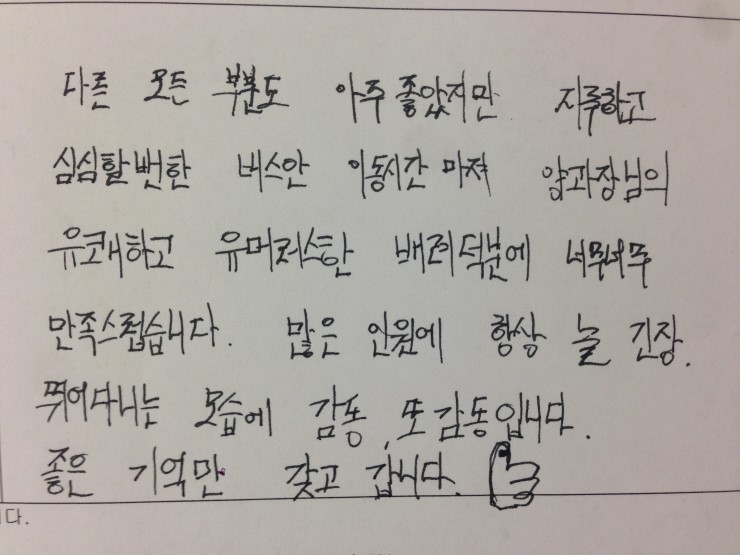 다른 모든 부분도 아주 좋았지만 지루하고
심심할뻔한 버스안 이동시간 마져 양과장님의
유쾌하고 유머러스한 배려덕분에 너무너무
만족스럽습니다. 많은 인원에 항상 늘 긴장.
뛰어다니는 모습에 감동, 또 감동입니다.
좋은 기억만 갖고 갑니다.
니다.